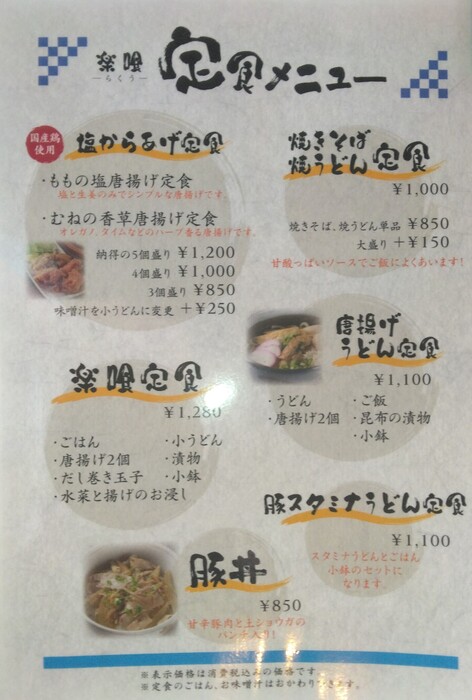 楽喰
らくう
定食メニュー
国産鶏
使用
塩からあげ定食
・ももの塩唐揚げ定食
塩と生姜のみでシンプルな唐揚げです。
・むねの香草唐揚げ定食
オレガノ、タイムなどのハーブ香る唐揚げです。
納得の5個盛り ¥1,200
4個盛り ¥1,000
3個盛り ¥850
味噌汁を小うどんに変更 +¥250
焼きそば
焼うどん定食
¥1,000
焼きそば、焼うどん単品 ¥850
大盛り +¥150
甘酸っぱいソースでご飯によくあいます!
唐揚げ
うどん定食
¥1,100
・うどん ・ご飯
・唐揚げ2個 ・昆布の漬物
・小鉢
楽喰定食
¥1,280
・ごはん ・小うどん
・唐揚げ2個 ・漬物
・だし巻き玉子 ・小鉢
・水菜と揚げのお浸し
豚スタミナうどん定食
¥1,100
スタミナうどんとごはん
小鉢のセットに
なります。
豚丼
¥850
甘辛豚肉と土ショウガの
パンチ入り!
※表示価格は消費税込みの価格です。
※定食のごはん、お味噌汁はおかわりできます。